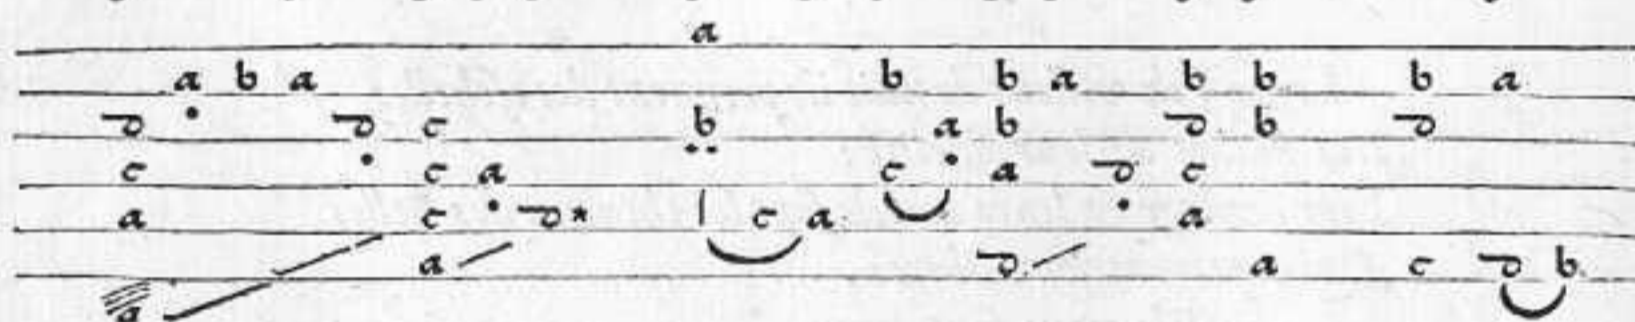 a
a b a b b a b b b a
d d c b a b d b d
c c a c a d c
a c d* c a a
a d a c d b
a